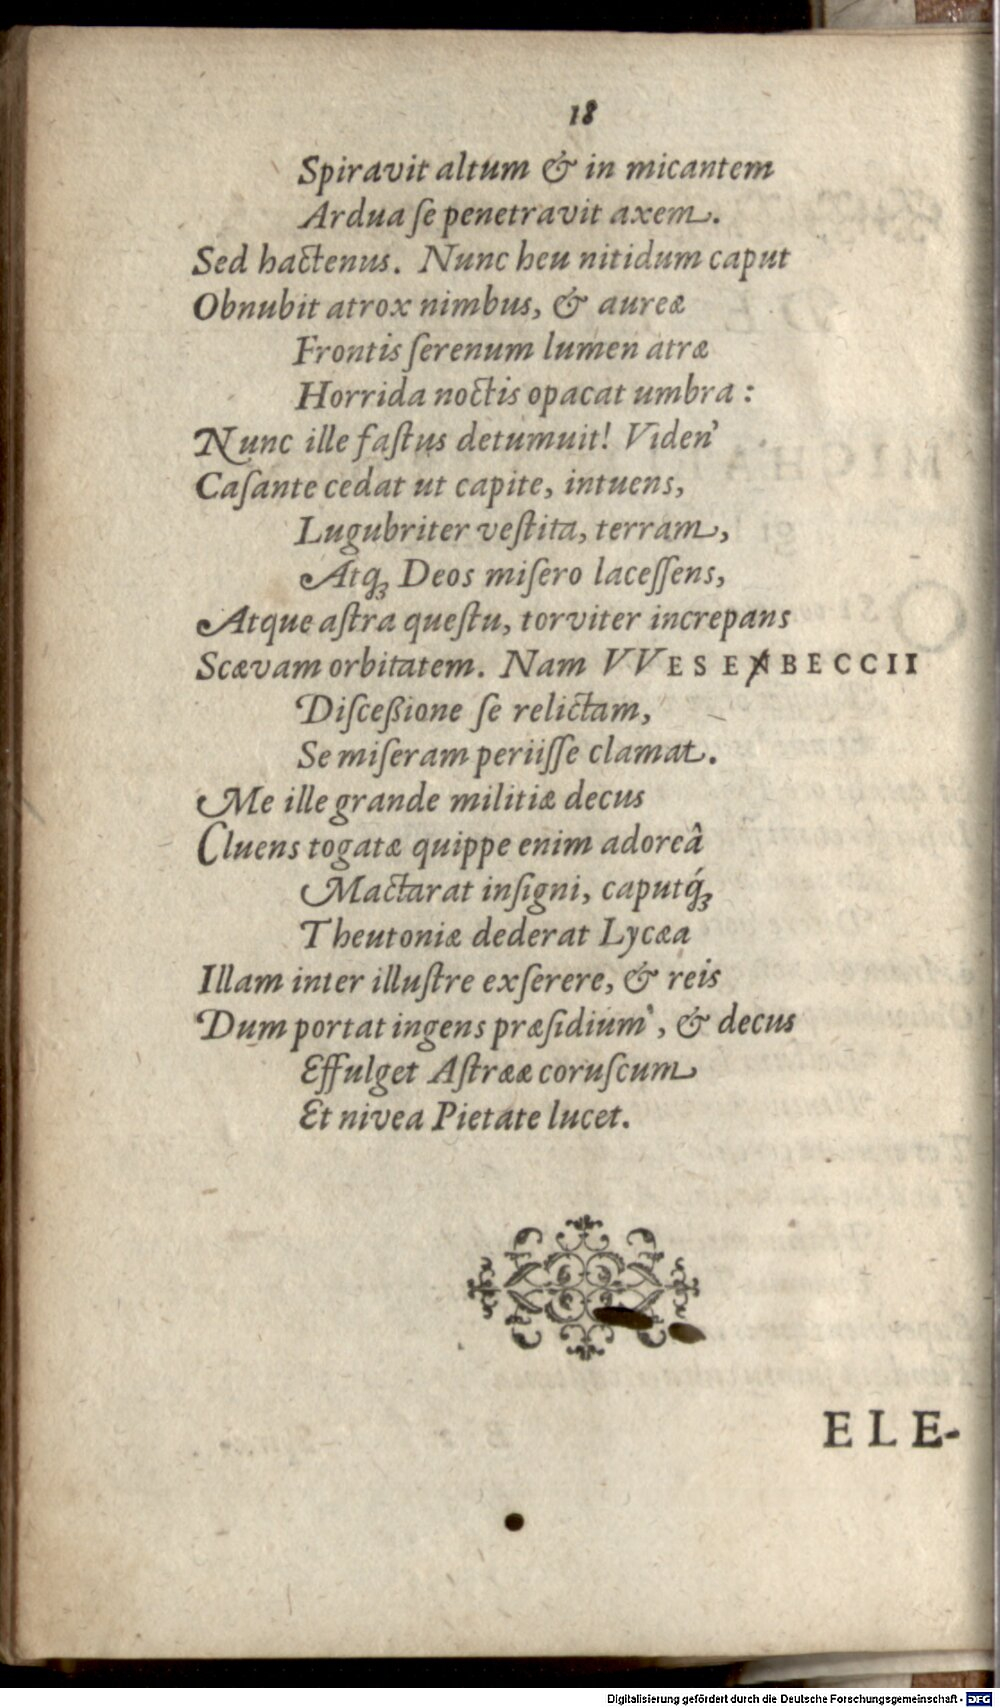 18
Spiravit altum & in micantem
Ardua ſe penetravit axem.
Sed hactenus. Nunc heu nitidum caput
Obnubit atrox nimbus, & aureæ
Frontis ſerenum lumen atræ
Horrida noctis opacat umbra :
Nunc ille faſtus detumuit! Viden'
Caſante cedat ut capite, intuens,
Lugubriter veſtita, terram,
Atq́ꝫ Deos miſero laceſſens,
Atque aſtra queſtu, torviter increpans
Scævam orbitatem. Nam VVESENBECCII
Diſceßione ſe relictam,
Se miſeram periiſſe clamat.
Me ille grande militiæ decus
Cluens togatæ quippe enim adoreâ
Mactarat inſigni, caputq́ꝫ
Theutoniæ dederat Lycæa
Illam inter illuſtre exſerere, & reis
Dum portat ingens præſidium, & decus
Effulget Aſtrææ coruſcum
Et nivea Pietate lucet.
ELE-
Digitalisierung gefördert durch die Deutsche Forschungsgemeinschaft - DFG